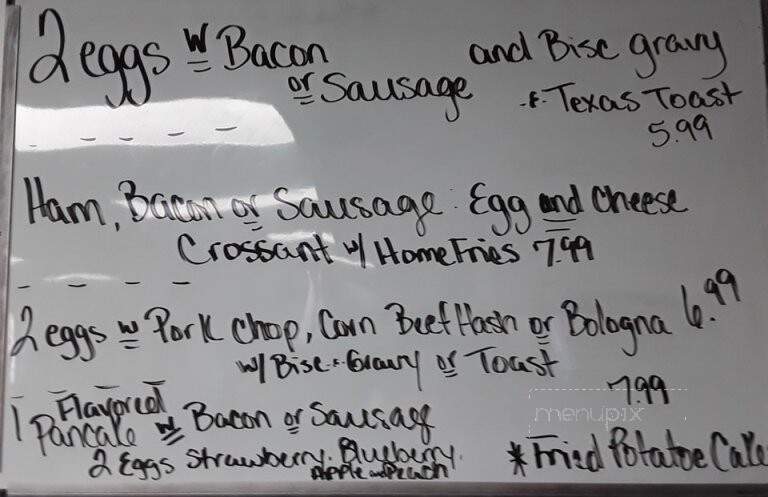 2 eggs w Bacon and Bisc gravy
or Sausage & Texas Toast
5.99
Ham, Bacon or Sausage: Egg and cheese
Crossant w/ Home Fries 7.99
2 eggs w Pork chop, Corn Beef Hash or Bologna 6.99
w/ Bisc & Gravy or Toast
7.99
1 Flavored
Pancake w Bacon or Sausage
2 Eggs Strawberry. Blueberry.
Apple and Peach
* Fried Potatoe Cake
menupix